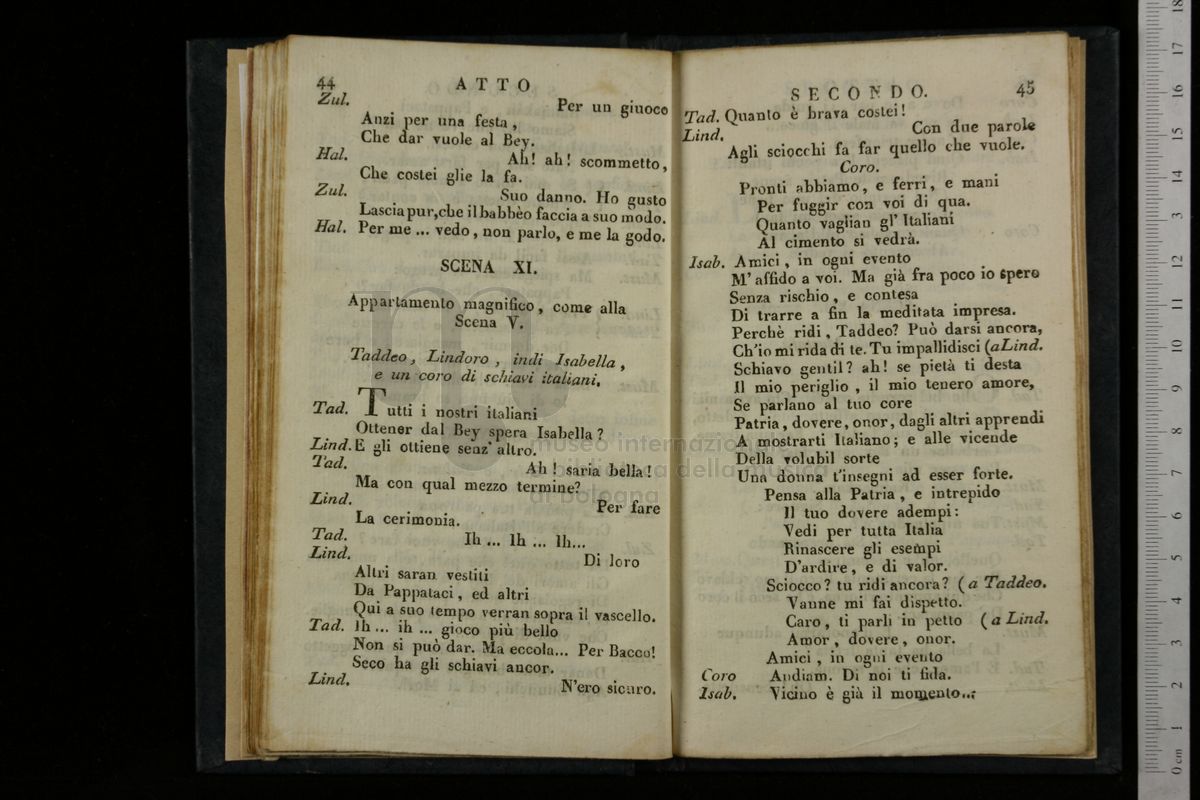 44 ATTO
Zul. Per un giuoco
Anzi per una festa,
Che dar vuole al Bey.
Hal. Ah! ah! scommetto,
Che costei glie la fa.
Zul. Suo danno. Ho gusto
Lascia pur, che il babbèo faccia a suo modo.
Hal. Per me ... vedo, non parlo, e me la godo.
SCENA XI.
Appartamento magnifico, come alla
Scena V.
Taddeo, Lindoro, indi Isabella,
e un coro di schiavi italiani.
Tad. Tutti i nostri italiani
Ottener dal Bey spera Isabella?
Lind. E gli ottiene senz' altro.
Tad. Ah! saria bella!
Ma con qual mezzo termine?
Lind. Per fare
La cerimonia.
Tad. Ih ... Ih ... Ih...
Lind. Di loro
Altri saran vestiti
Da Pappataci, ed altri
Qui a suo tempo verran sopra il vascello.
Tad. Ih ... ih ... gioco più bello
Non si può dar. Ma eccola... Per Bacco!
Seco ha gli schiavi ancor.
Lind. N'ero sicuro.
SECONDO. 45
Tad. Quanto è brava costei!
Lind. Con due parole
Agli sciocchi fa far quello che vuole.
Coro.
Pronti abbiamo, e ferri, e mani
Per fuggir con voi di qua.
Quanto vaglian gl' Italiani
Al cimento si vedrà.
Isab. Amici, in ogni evento
M' affido a voi. Ma già fra poco io spero
Senza rischio, e contesa
Di trarre a fin la meditata impresa.
Perchè ridi, Taddeo? Può darsi ancora,
Ch'io mi rida di te. Tu impallidisci (a Lind.
Schiavo gentil? ah! se pietà ti desta
Il mio periglio, il mio tenero amore,
Se parlano al tuo core
Patria, dovere, onor, dagli altri apprendi
A mostrarti Italiano; e alle vicende
Della volubil sorte
Una donna t'insegni ad esser forte.
Pensa alla Patria, e intrepido
Il tuo dovere adempi:
Vedi per tutta Italia
Rinascere gli esempi
D'ardire, e di valor.
Sciocco? tu ridi ancora? (a Taddeo.
Vanne mi fai dispetto.
Caro, ti parli in petto (a Lind.
Amor, dovere, onor.
Amici, in ogni evento
Coro Andiam. Di noi ti fida.
Isab. Vicino è già il momento...
museo internazionale
e biblioteca della musica
di bologna
0 cm 1 2 3 4 5 6 7 8 9 10 11 12 13 14 15 16 17 18